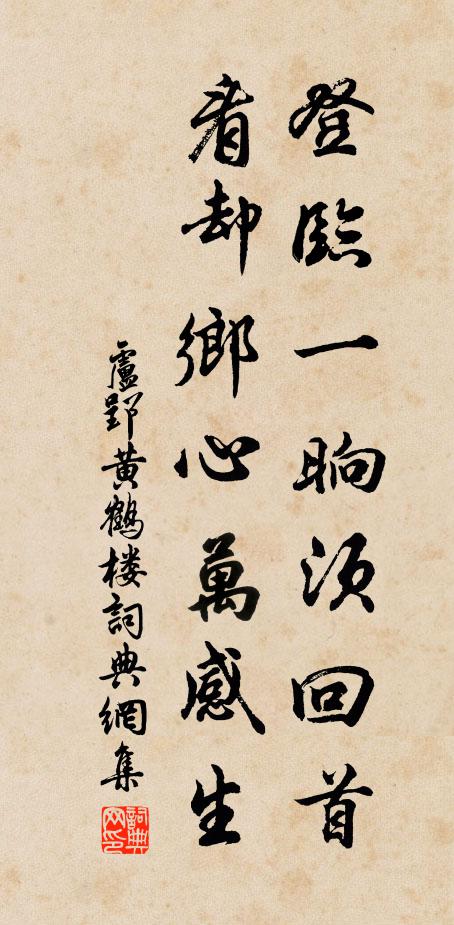 登臨一晌須回首
看却鄉心萬感生
盧郢黄鶴楼詞典網集
詞典网印